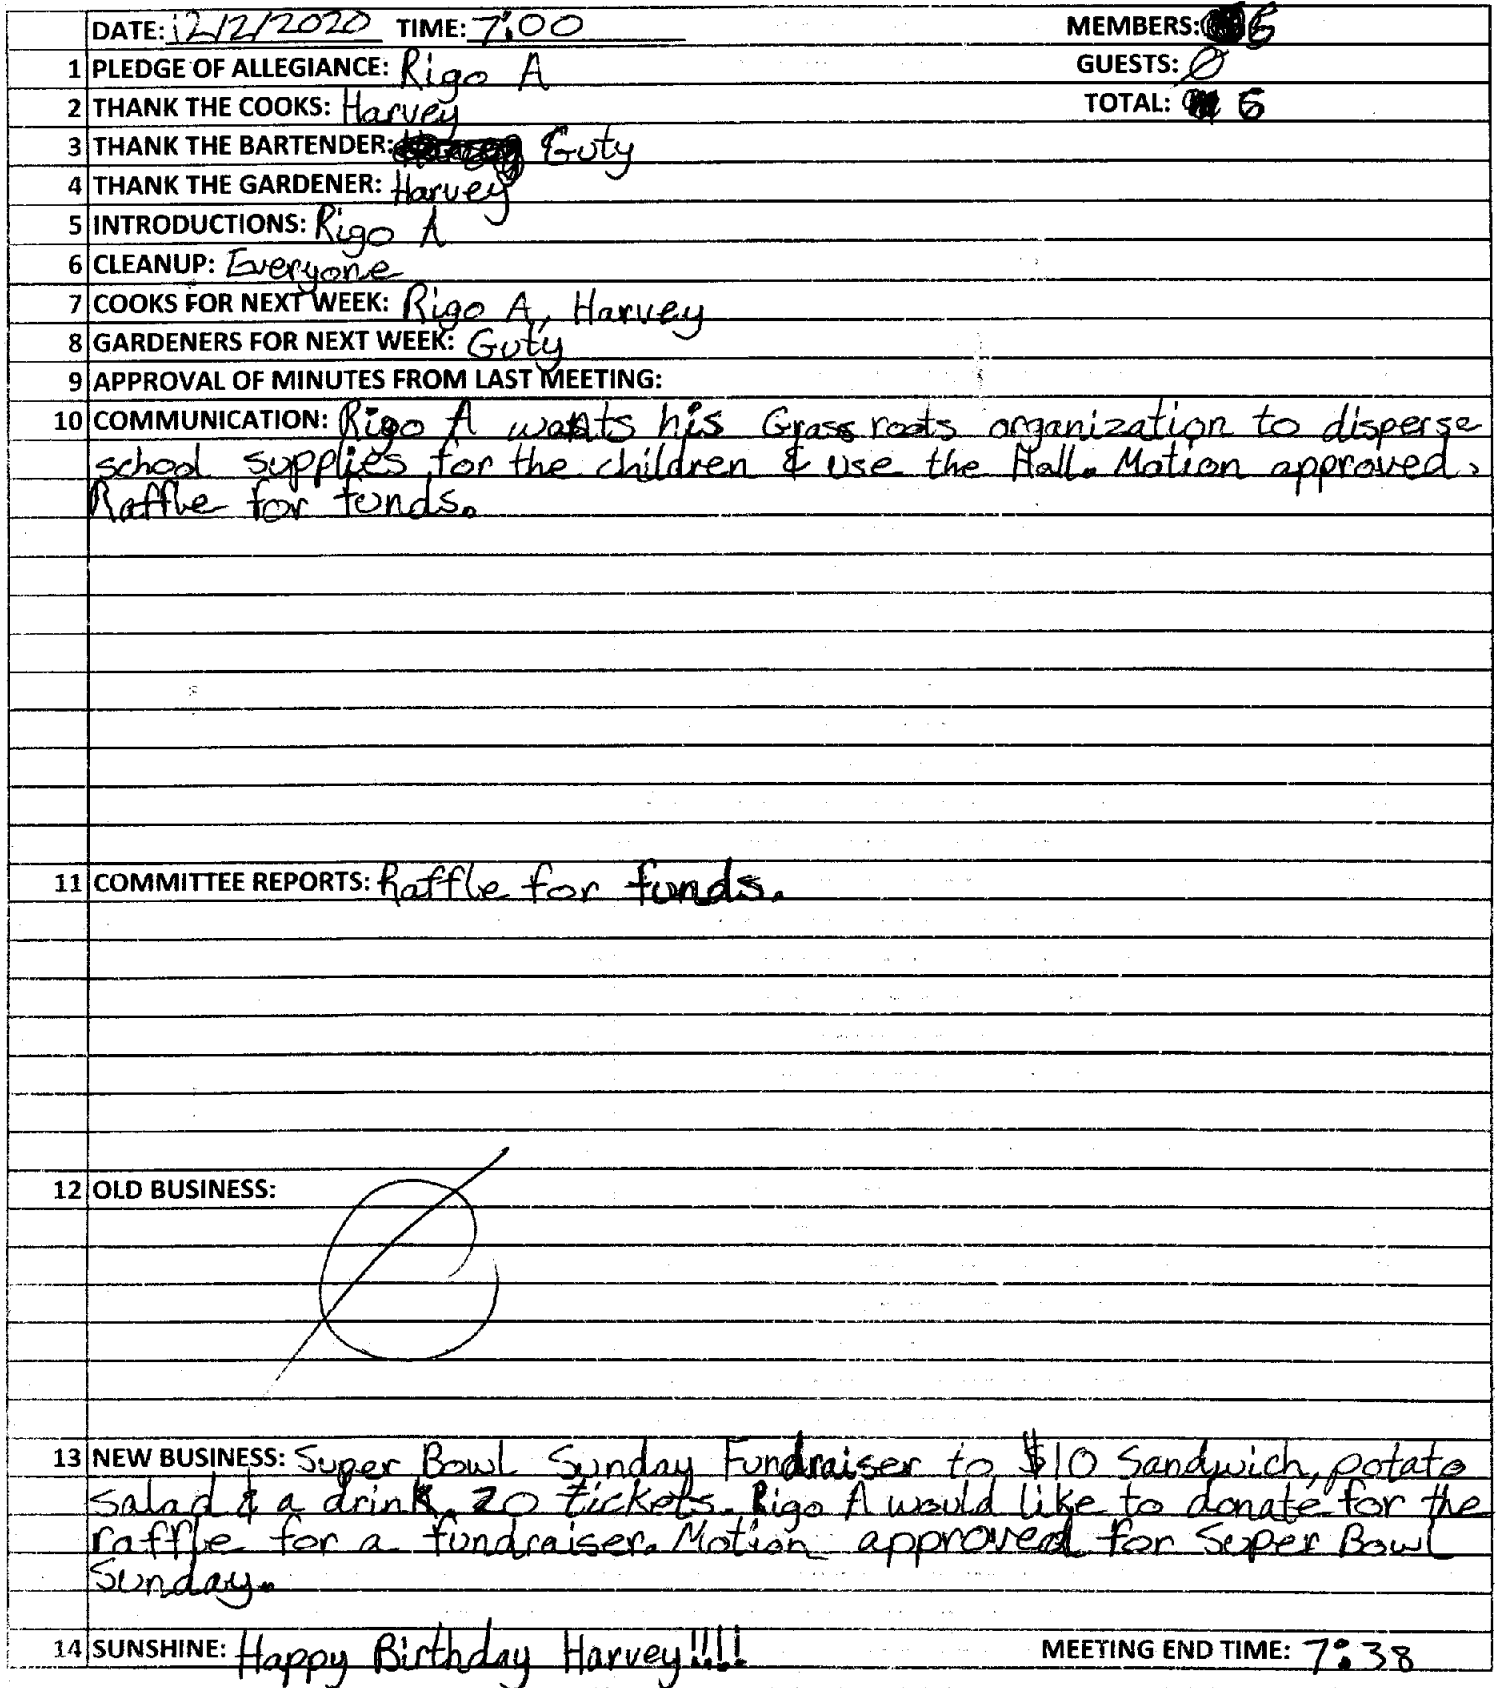 DATE: 12/2/2020 TIME: 7:00 MEMBERS: 6
1 PLEDGE OF ALLEGIANCE: Rigo A GUESTS: Ø
2 THANK THE COOKS: Harvey TOTAL: 6
3 THANK THE BARTENDER: Guty
4 THANK THE GARDENER: Harvey
5 INTRODUCTIONS: Rigo A
6 CLEANUP: Everyone
7 COOKS FOR NEXT WEEK: Rigo A, Harvey
8 GARDENERS FOR NEXT WEEK: Guty
9 APPROVAL OF MINUTES FROM LAST MEETING:
10 COMMUNICATION: Rigo A wants his Grass roots organization to disperse
school supplies for the children & use the Hall. Motion approved.
Raffle for funds.
11 COMMITTEE REPORTS: Raffle for funds.
12 OLD BUSINESS: Ø
13 NEW BUSINESS: Super Bowl Sunday Fundraiser to $10 Sandwich, potato
salad & a drink. 20 tickets. Rigo A would like to donate for the
raffle for a fundraiser. Motion approved for Super Bowl
Sunday.
14 SUNSHINE: Happy Birthday Harvey!!!! MEETING END TIME: 7:38